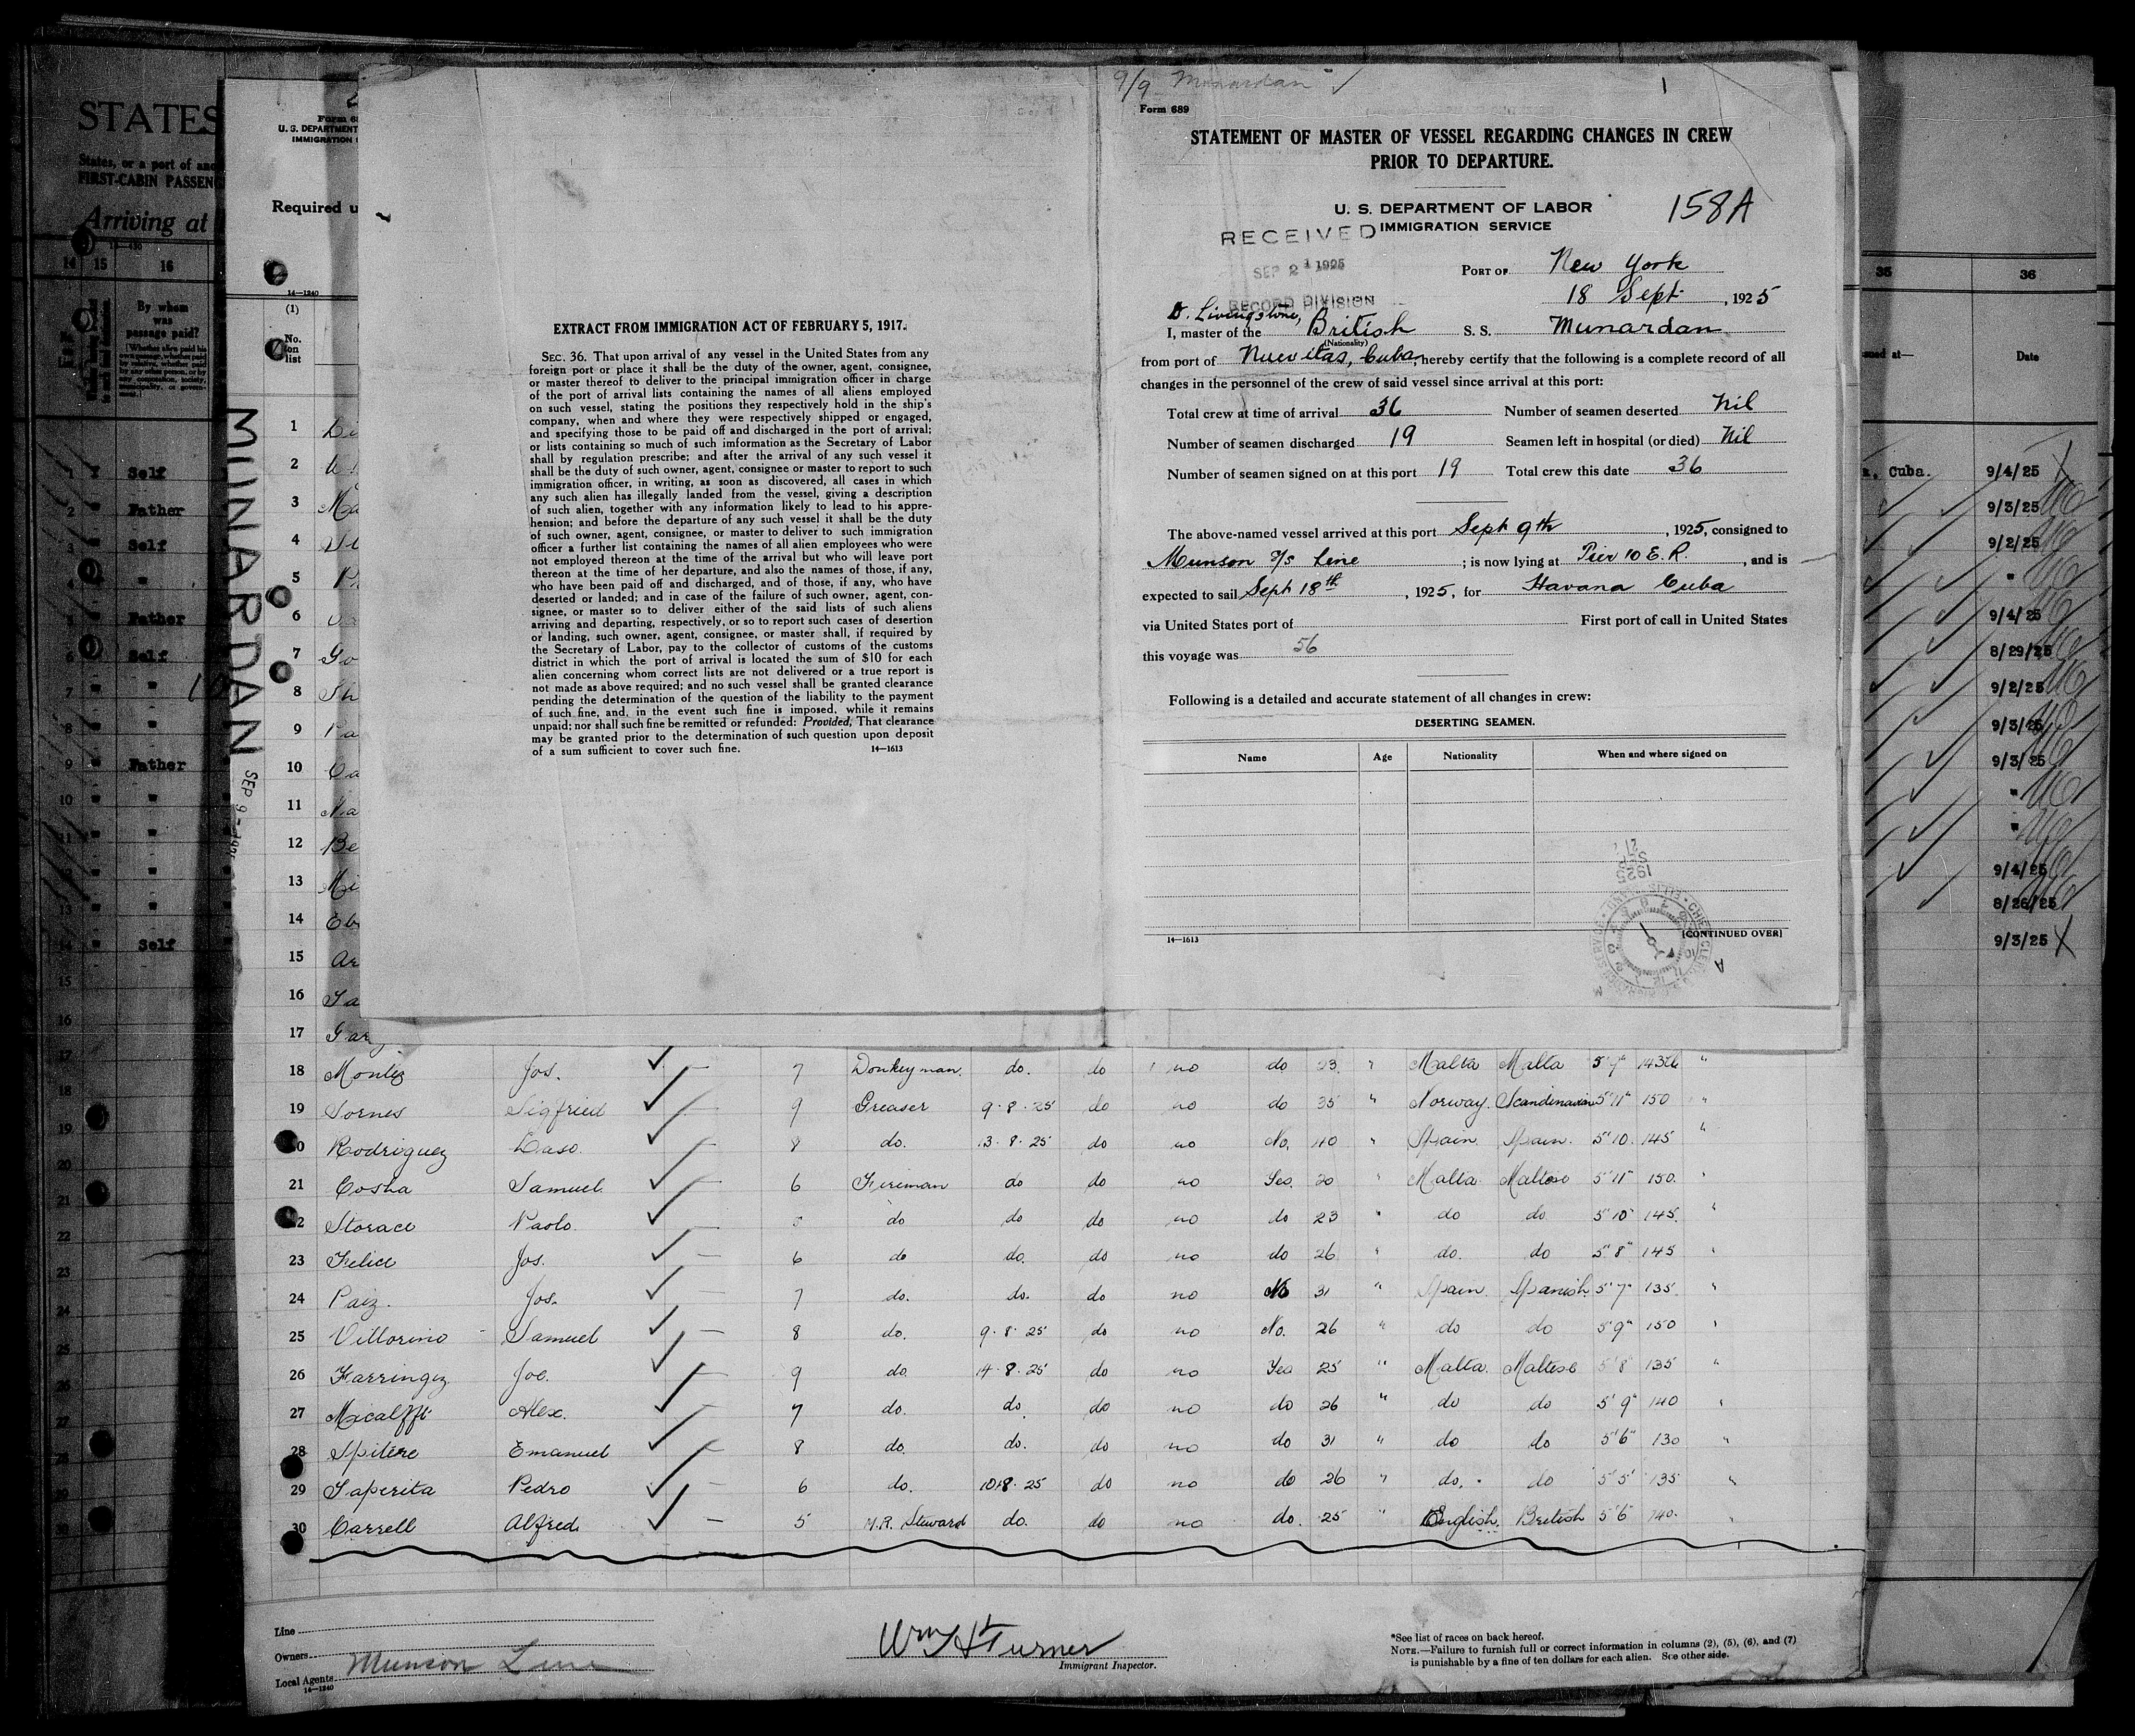 STATES
States, or a port of
FIRST-CABIN PASSEN
Arriving at
14 15 16
By whom
was
passage paid?
1 " Self
2 " Father
3 " Self
4 " "
5 " Father
6 " Self
7 " "
8 " "
9 " Father
10 " "
11 " "
12 " "
13 " "
14 " Self
15
16
17
18
19
20
21
22
23
24
25
26
27
28
29
30
Form 68
U. S. DEPARTMENT
IMMIGRATION
Required u
14—1240
(1)
No.
on
list
MUNARDAN SEP 9-1925
1
2
3 Ma
4
5
6
7 Go
8 Sh
9 Pa
10 Ca
11 Na
12 Be
13 Mi
14 Eb
15 Ar
16
17 Gar
EXTRACT FROM IMMIGRATION ACT OF FEBRUARY 5, 1917.
SEC. 36. That upon arrival of any vessel in the United States from any
foreign port or place it shall be the duty of the owner, agent, consignee,
or master thereof to deliver to the principal immigration officer in charge
of the port of arrival lists containing the names of all aliens employed
on such vessel, stating the positions they respectively hold in the ship's
company, when and where they were respectively shipped or engaged,
and specifying those to be paid off and discharged in the port of arrival;
or lists containing so much of such imformation as the Secretary of Labor
shall by regulation prescribe; and after the arrival of any such vessel it
shall be the duty of such owner, agent, consignee or master to report to such
immigration officer, in writing, as soon as discovered, all cases in which
any such alien has illegally landed from the vessel, giving a description
of such alien, together with any information likely to lead to his appre-
hension; and before the departure of any such vessel it shall be the duty
of such owner, agent, consignee, or master to deliver to such immigration
officer a further list containing the names of all alien employees who were
not employed thereon at the time of the arrival but who will leave port
thereon at the time of her departure, and also the names of those, if any,
who have been paid off and discharged, and of those, if any, who have
deserted or landed; and in case of the failure of such owner, agent, con-
signee, or master so to deliver either of the said lists of such aliens
arriving and departing, respectively, or so to report such cases of desertion
or landing, such owner, agent, consignee, or master shall, if required by
the Secretary of Labor, pay to the collector of customs of the customs
district in which the port of arrival is located the sum of $10 for each
alien concerning whom correct lists are not delivered or a true report is
not made as above required; and no such vessel shall be granted clearance
pending the determination of the question of the liability to the payment
of such fine, and, in the event such fine is imposed, while it remains
unpaid; nor shall such fine be remitted or refunded: Provided, That clearance
may be granted prior to the determination of such question upon deposit
of a sum sufficient to cover such fine. 14—1613
9/9 Munardan ✓
1
Form 689
STATEMENT OF MASTER OF VESSEL REGARDING CHANGES IN CREW
PRIOR TO DEPARTURE.
U. S. DEPARTMENT OF LABOR
IMMIGRATION SERVICE
158A
RECEIVED
SEP 21 1925
RECORD DIVISION
PORT OF New York
18 Sept , 1925
D. Livingstone,
I, master of the British S. S. Munardan
(Nationality)
from port of Nuevitas, Cuba, hereby certify that the following is a complete record of all
changes in the personnel of the crew of said vessel since arrival at this port:
Total crew at time of arrival 36 Number of seamen deserted Nil
Number of seamen discharged 19 Seamen left in hospital (or died) Nil
Number of seamen signed on at this port 19 Total crew this date 36
The above-named vessel arrived at this port Sept 9th , 1925, consigned to
Munson S/S Line ; is now lying at Pier 10 E. R. , and is
expected to sail Sept 18th , 1925, for Havana Cuba
via United States port of First port of call in United States
this voyage was 56
Following is a detailed and accurate statement of all changes in crew:
DESERTING SEAMEN.
Name Age Nationality When and where signed on
14—1613 [CONTINUED OVER]
1925
SEP
21
35 36
Date
Cuba. 9/4/25
9/3/25
9/2/25
"
9/4/25
8/29/25
9/2/25
9/3/25
9/3/25
"
"
9/4/25
8/26/25
9/3/25
18 Montiz Jos. ✓ — 7 Donkeyman. do. do no do 23 " Malta Malta 5'9" 143lb "
19 Sornes Sigfried ✓ — 9 Greaser 9·8·25 do no do 35 " Norway. Scandinavian 5'11" 150 "
20 Rodriguez Daso. ✓ — 8 do. 13·8·25 do no No. 40 " Spain Spain. 5'10 145 "
21 Cosha Samuel ✓ — 6 Fireman do do no Yes. 20 " Malta Maltese 5'11" 150. "
22 Storace Paolo ✓ — do do do no do 23 " do do 5'10" 145. "
23 Felice Jos. ✓ — 6 do do. do no do 26 " do. do 5'8" 145 "
24 Paiz. Jos. ✓ — 7 do. do. do no No 31 " Spain. Spanish 5'7" 135 "
25 Villorino Samuel ✓ — 8 do. 9·8·25 do no No. 26 " do do 5'9" 150 "
26 Farringiz Joe. ✓ — 9 do. 14·8·25 do no Yes 25 " Malta. Maltese 5'8" 135 "
27 Micalfft Alex. ✓ — 7 do. do do no do 26 " do do 5'9" 140 "
28 Spitere Emanuel ✓ — 8 do. do. do no do 31 " do do 5'6" 130 "
29 Saperita Pedro ✓ — 6 do. 10·8·25 do no do 26 " do. do 5'5" 135 "
30 Carrell Alfred ✓ — 5 M.R. Steward do. do no do. 25 " English. British 5'6" 140. "
Line
Owners
Local Agents Munson Line
14—1240
Wm H Turner
Immigrant Inspector.
*See list of races on back hereof.
NOTE.—Failure to furnish full or correct information in columns (2), (5), (6), and (7)
is punishable by a fine of ten dollars for each alien. See other side.